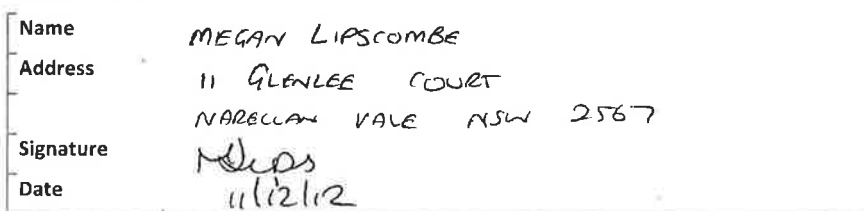 Name MEGAN LIPSCOMBE
Address 11 GLENLEE COURT
NARELLAN VALE NSW 2567
Signature MLips
Date 11/12/12